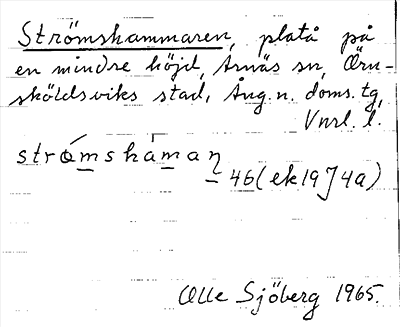 Strömshammaren, platå på
en mindre höjd, Arnäs sn, Örn-
sköldsviks stad, Ång. n. doms. tg,
Vnrl. l.
strómshàman
46 (ek 19 J 4a)
Olle Sjöberg 1965.